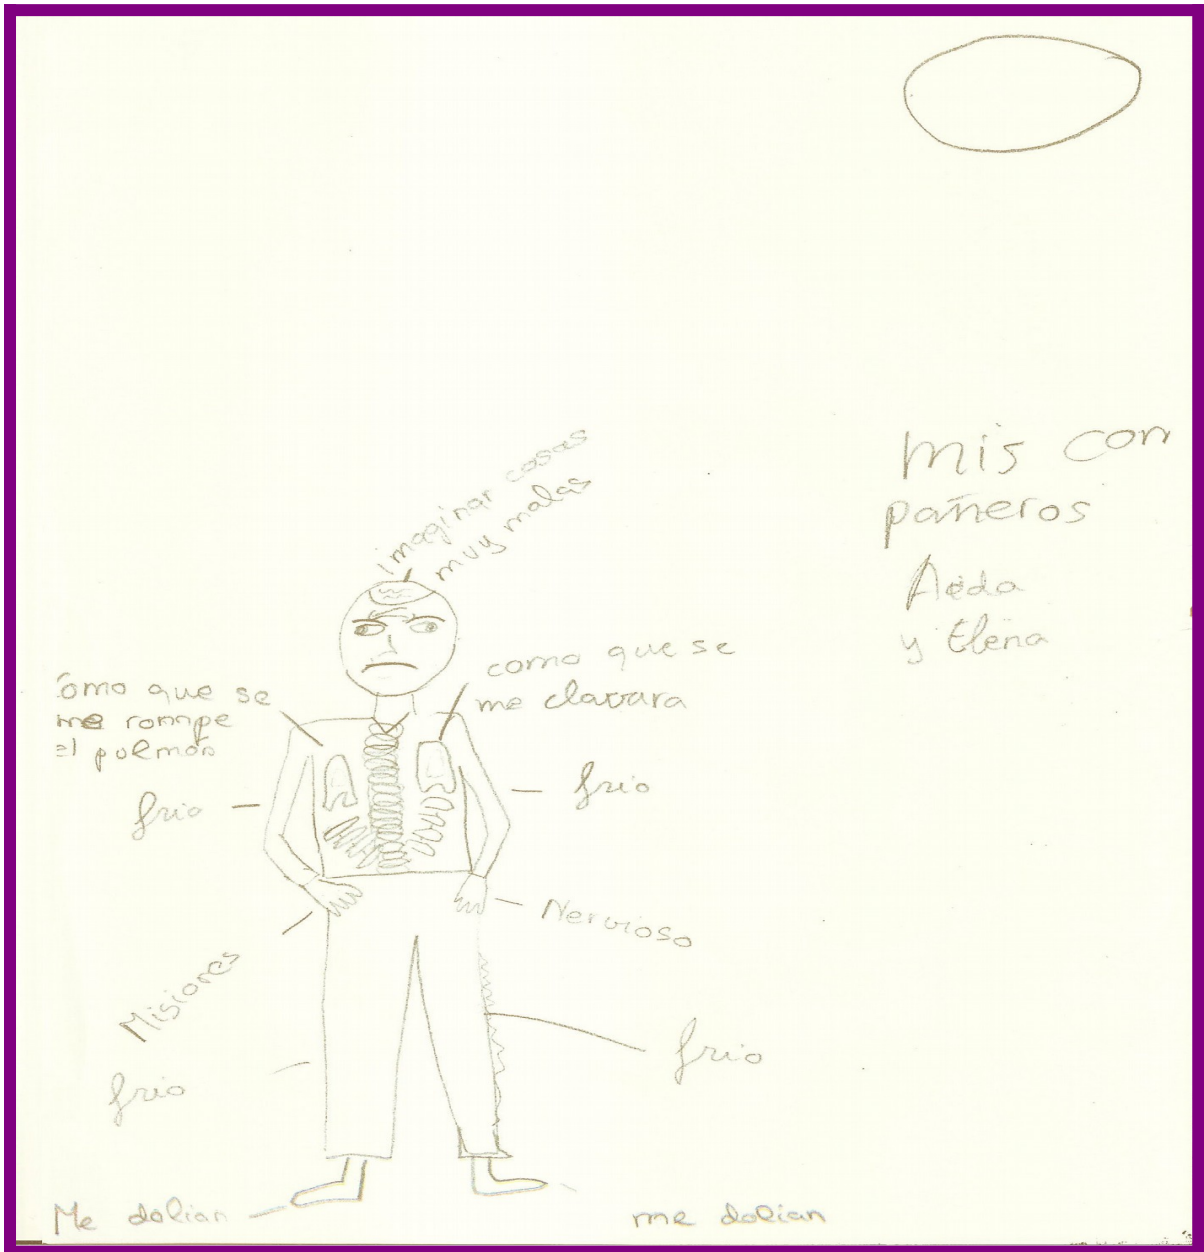 imaginar cosas
muy malas
mis com
pañeros
Aeda
y Elena
como que se
me clavara
omo que se
me rompe
el pulmón
frio
frio
Nervioso
Misiones
frio
frio
Me dolian
me dolian